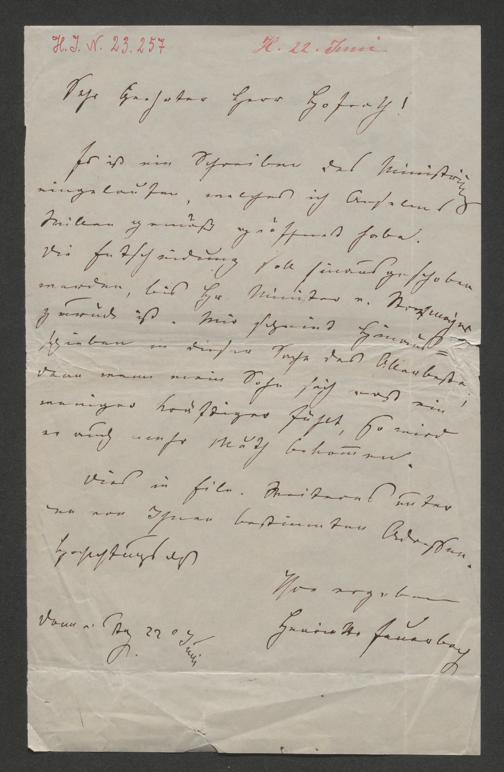 H. I. N. 23.257
H. 22. Juni
Sehr Geehrter Herr Hofrath!
Es ist ein Schreiben des Ministeriums
eingelaufen, welches ich Anselms
Willen gemäß geöffnet habe.
Die Entscheidung soll hinausgeschoben
werden, bis Hr. Minister v. Stremayer
zurück ist. Mir scheint Hinaus=
schieben in dieser Sache das Allerbeste,
denn wenn mein Sohn sich erst ein
weniger kräftiger fühlt, so wird
er auch mehr Muth bekommen.
Dies in Eile. Weiteres unter
den von Ihnen bestimmten Adressen.
Hochachtungsvoll
Ihre ergebene
Henriette Feuerbach
22 Juni